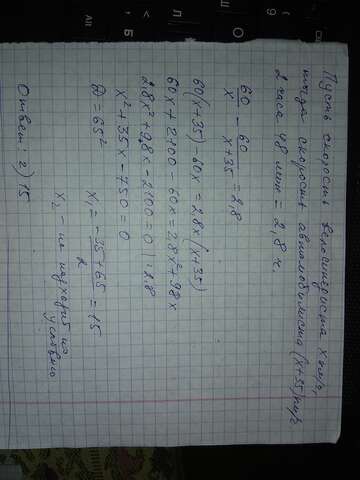 Пусть скорость велосипедиста x км/ч,
тогда скорость автомобилиста (x+35) км/ч
2 часа 48 мин = 2,8 ч.
60/x - 60/(x+35) = 2,8
60(x+35) - 60x = 2,8x(x+35)
60x + 2100 - 60x = 2,8x² + 98x
2,8x² + 98x - 2100 = 0 | : 2,8
x² + 35x - 750 = 0
D = 65² x₁ = (-35+65)/2 = 15
x₂ - не подходит по
условию
Ответ: 2) 15
Alt
Б
Л
О
Ш
9